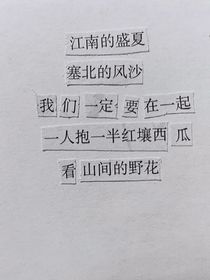 江南的盛夏
塞北的风沙
我们一定要在一起
一人抱一半红壤西瓜
看山间的野花